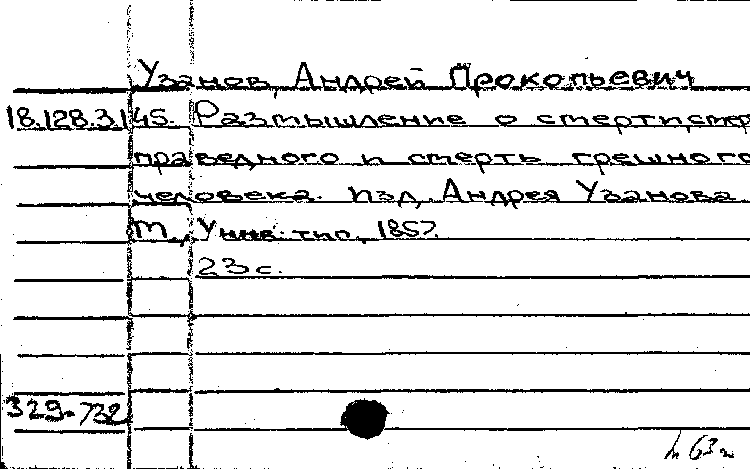 Узанов, Андрей Прокопьевич
18.128.3.145. Размышление о смерти, смер
праведного и смерть грешного
человека. Изд. Андрея Узанова
М., Унив. тип., 1857.
23 с.
329-732